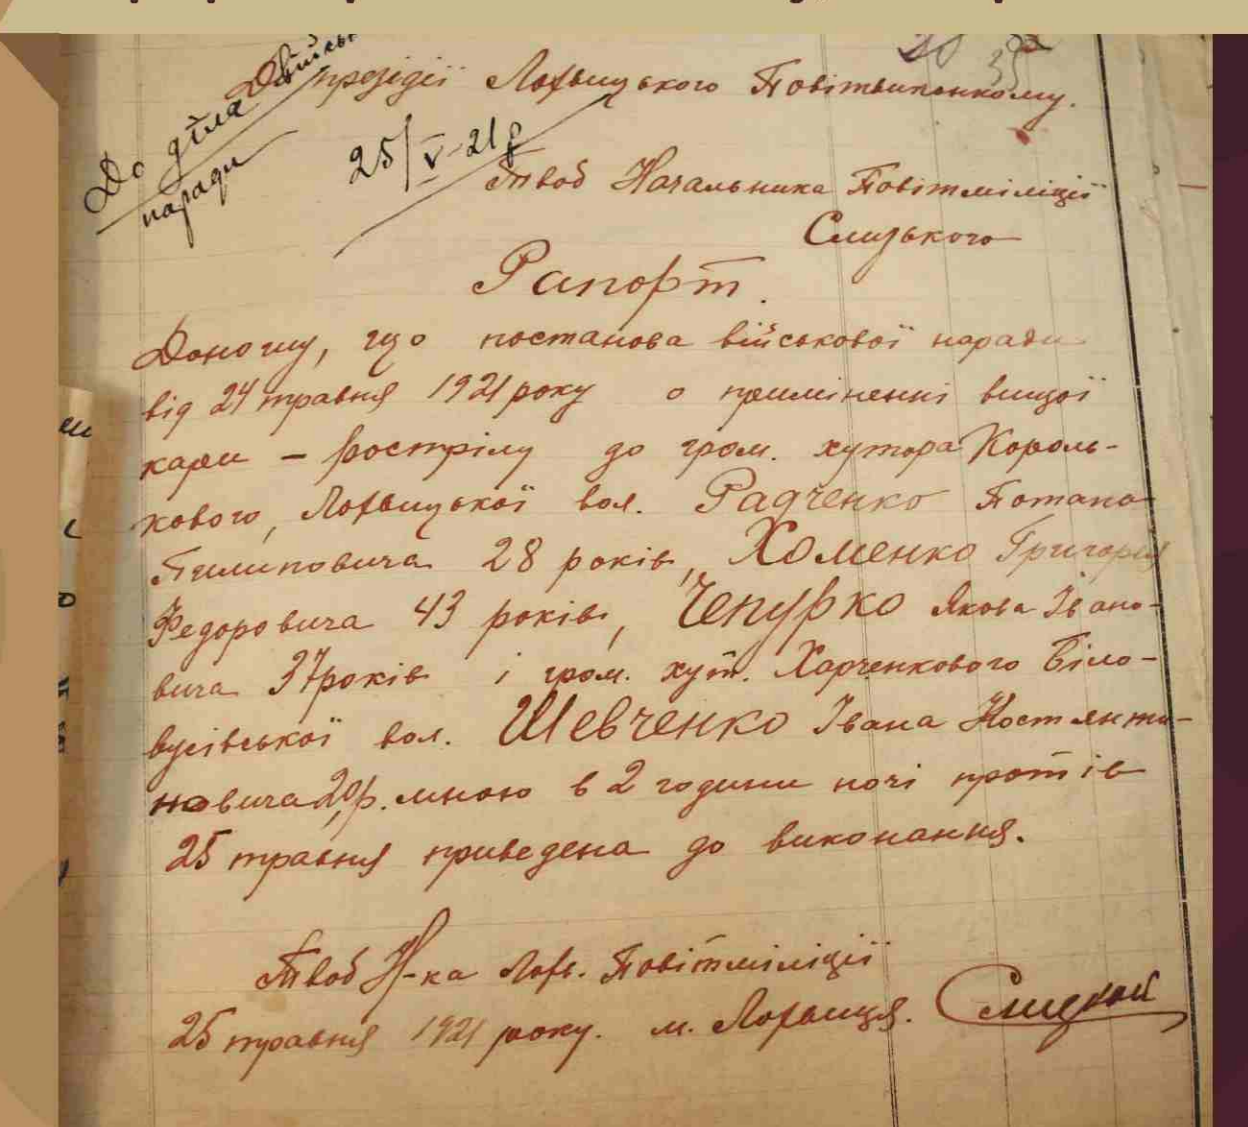 До діла військ
наради
25/V-21 р
До президії Лохвицького Повітвиконкому.
Твоб Начальника Повітміліції
Слизького
Рапорт.
Доношу, що постанова військової наради
від 24 травня 1921 року о приміненні вищої
кари – розстрілу до гром. хутора Король-
кового, Лохвицької вол. Радченко Потапа
Пилиповича 28 років, Хоменко Григорія
Федоровича 43 років, Чепурко Якова Івано-
вича 37 років і гром. хут. Харченкового Біло-
вусівської вол. Шевченко Івана Костянти-
новича 20 р. мною в 2 години ночі протів
25 травня приведена до виконання.
Твоб Н-ка Лохв. Повітміліції
25 травня 1921 року. м. Лохвиця.